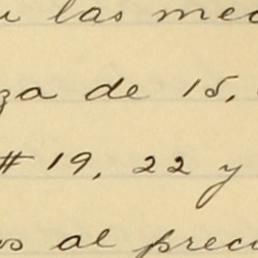 las med
za de 15,
# 19, 22 y
os al preci